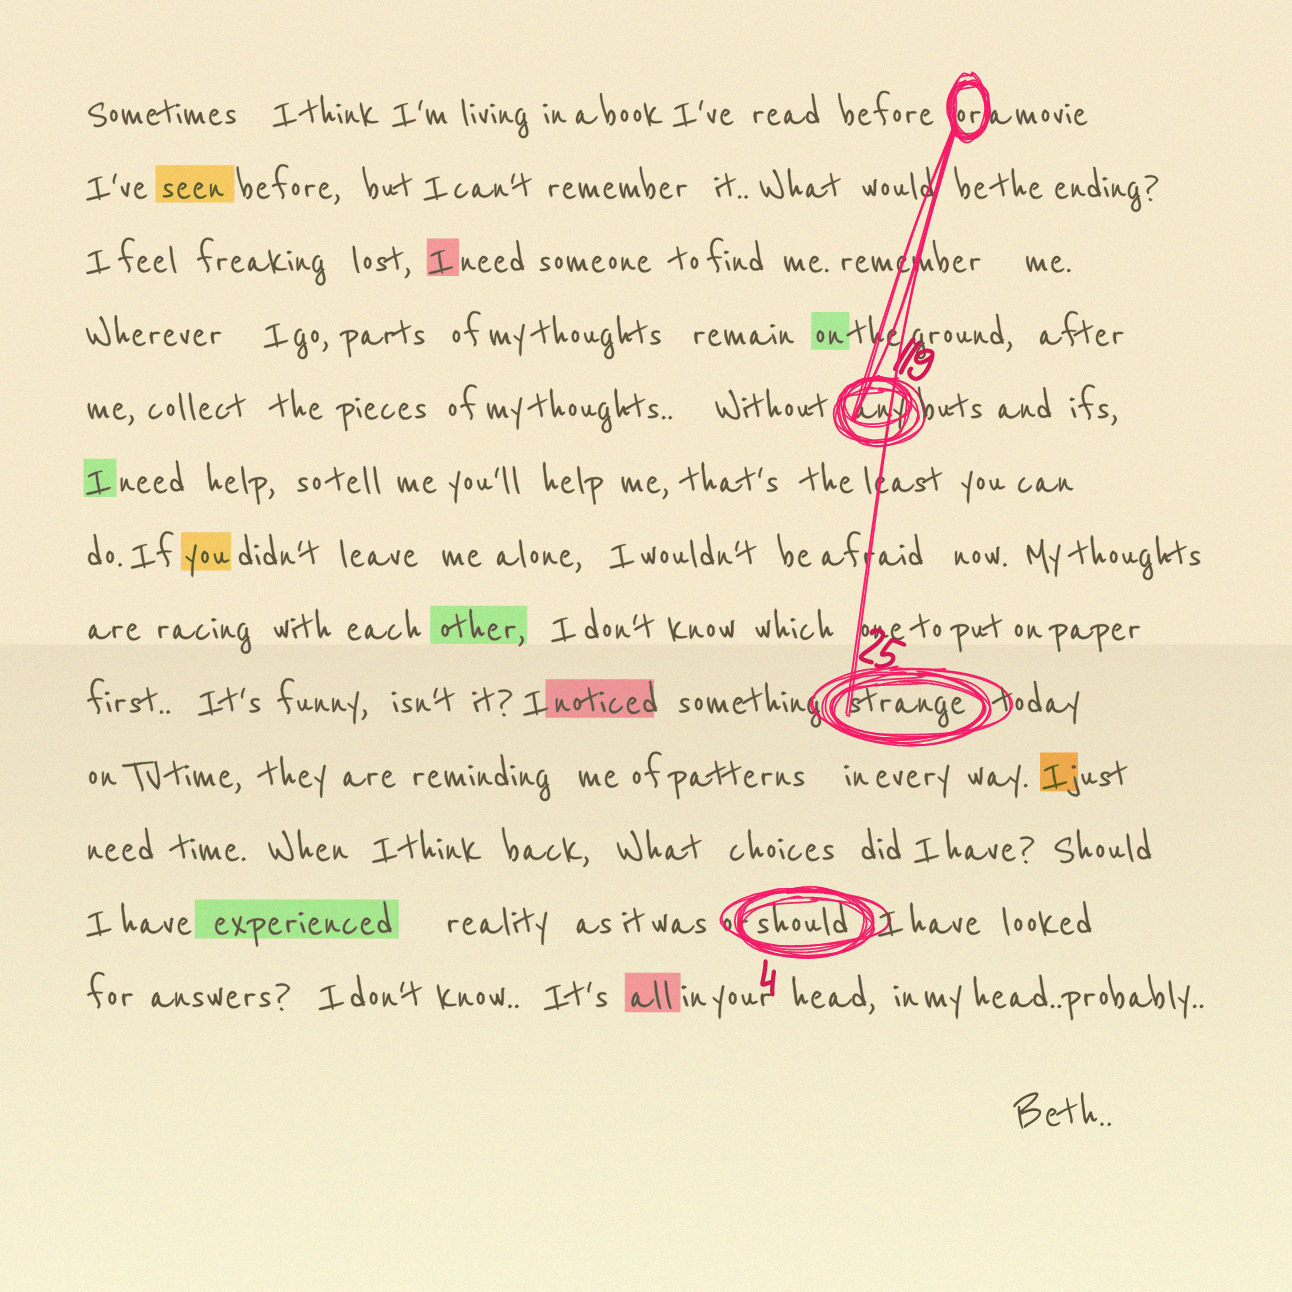 Sometimes I think I'm living in a book I've read before or a movie
I've seen before, but I can't remember it.. What would be the ending?
I feel freaking lost, I need someone to find me. remember me.
Wherever I go, parts of my thoughts remain on the ground, after
119
me, collect the pieces of my thoughts.. Without any buts and ifs,
I need help, so tell me you'll help me, that's the least you can
do. If you didn't leave me alone, I wouldn't be afraid now. My thoughts
are racing with each other, I don't know which one to put on paper
25
first.. It's funny, isn't it? I noticed something strange today
on TV time, they are reminding me of patterns in every way. I just
need time. When I think back, What choices did I have? Should
I have experienced reality as it was or should I have looked
4
for answers? I don't know.. It's all in your head, in my head..probably..
Beth..